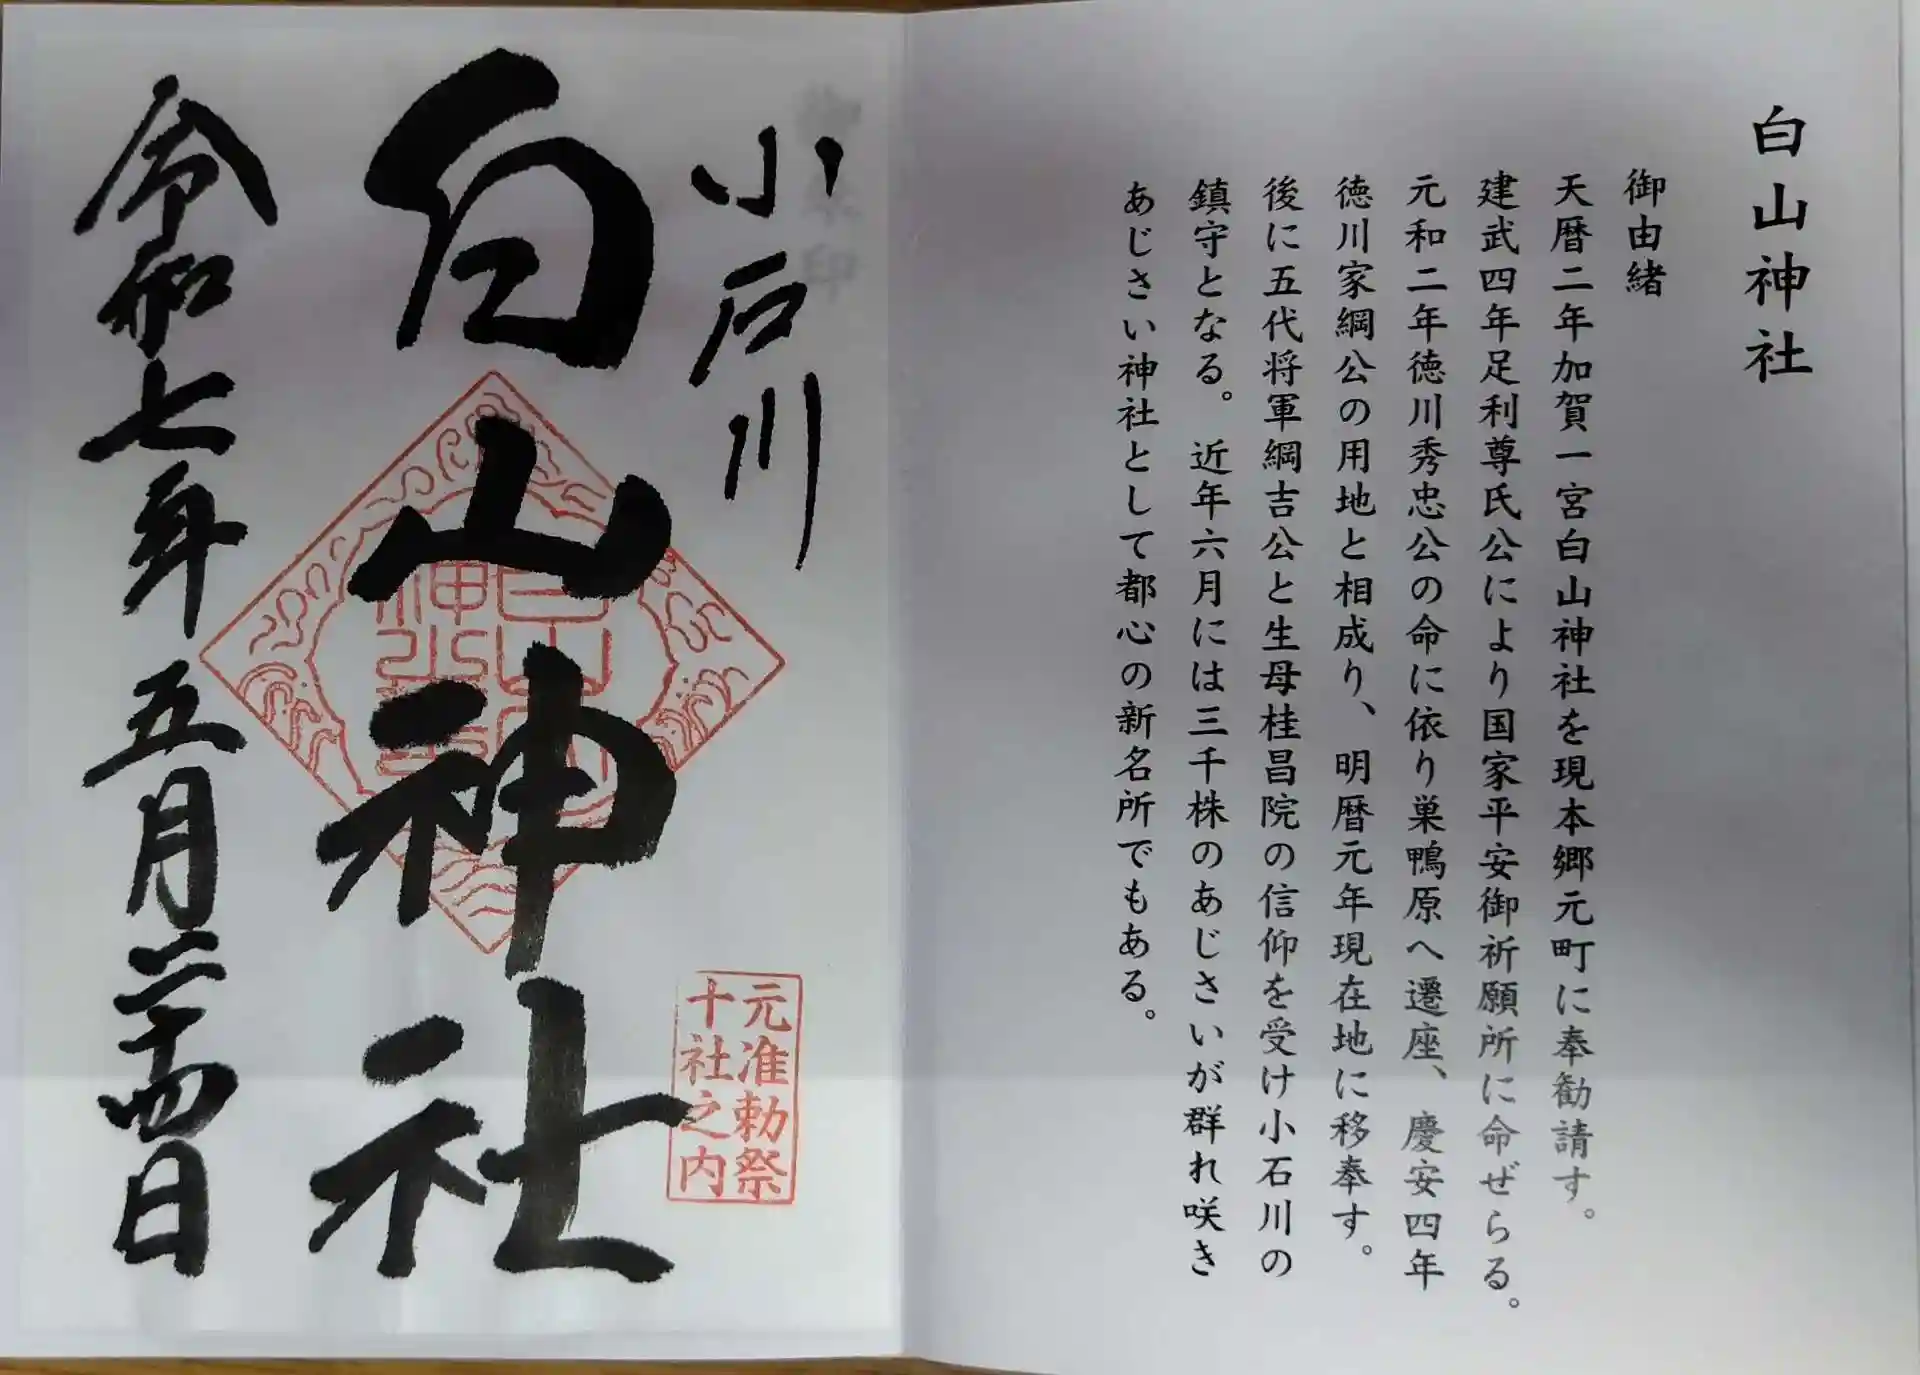 白山神社
御由緒
天暦二年加賀一宮白山神社を現本郷元町に奉勧請す。
建武四年足利尊氏公により国家平安御祈願所に命ぜらる。
元和二年徳川秀忠公の命に依り巣鴨原へ遷座、慶安四年
徳川家綱公の用地と相成り、明暦元年現在地に移奉す。
後に五代将軍綱吉公と生母桂昌院の信仰を受け小石川の
鎮守となる。近年六月には三千株のあじさいが群れ咲き
あじさい神社として都心の新名所でもある。
小戸川
元准勅祭
十社之内
白山神社
令和七年五月二十四日